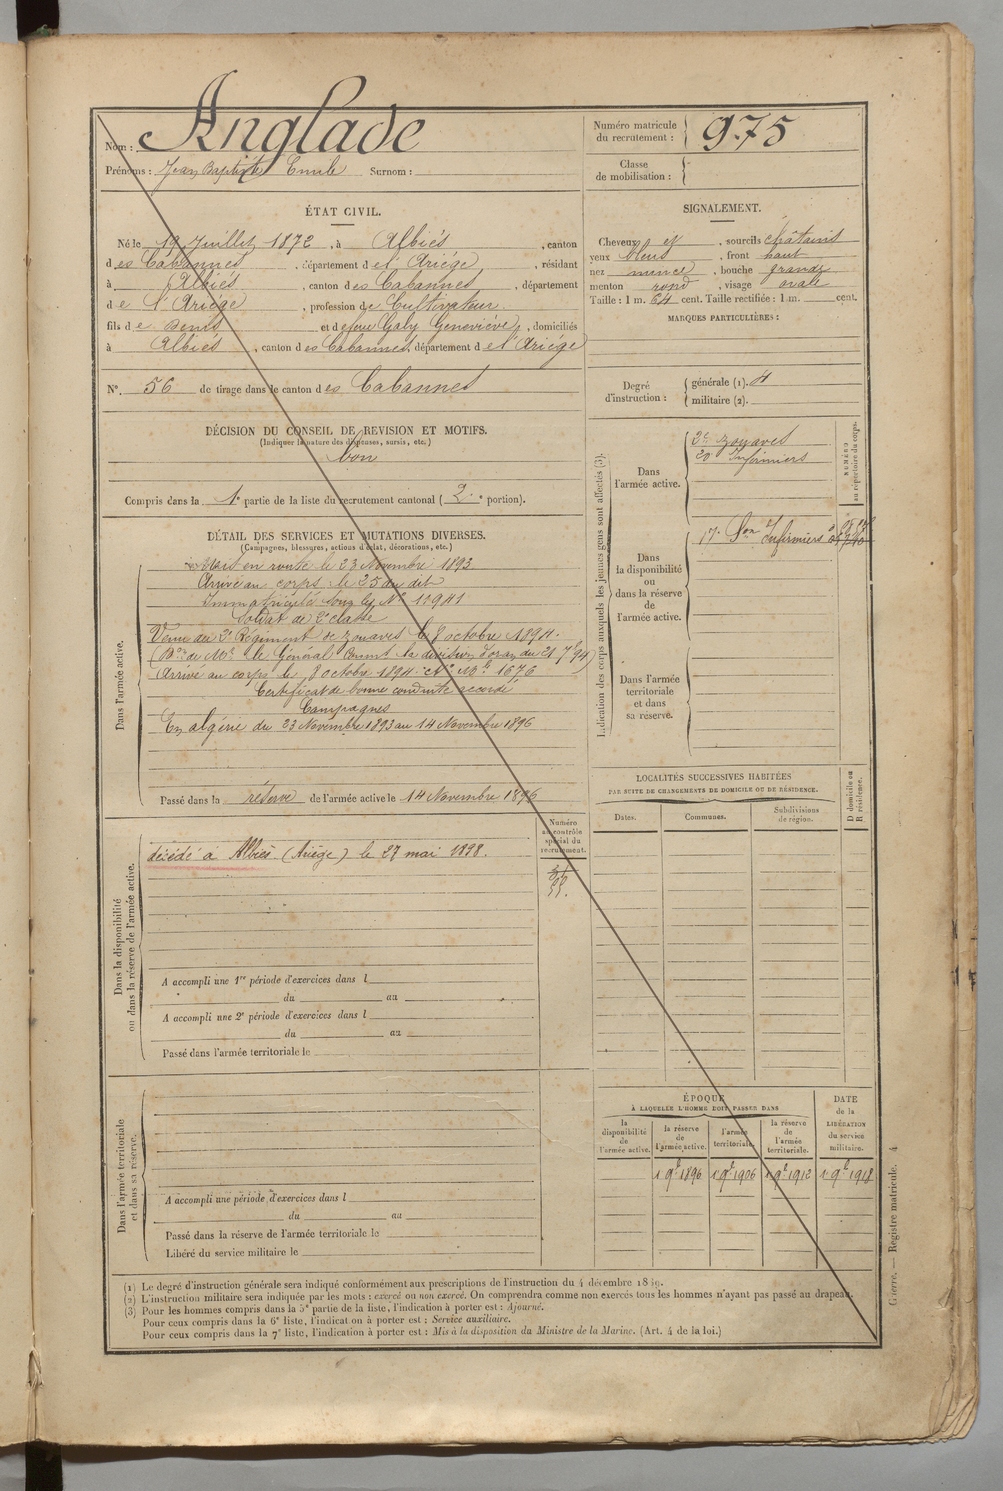 Nom : Anglade
Prénoms : Jean Baptiste Emile Surnom :
Numéro matricule
du recrutement : 975
Classe
de mobilisation :
ÉTAT CIVIL.
Né le 19 Juillet 1872, à Albiés, canton
des Cabannes, département de l'Ariége, résidant
à Albiés, canton des Cabannes, département
de l'Ariége, profession de Cultivateur
fils de Denis et de feue Galy Geneviève, domiciliés
à Albiés, canton des Cabannes, département de l'Ariége
N°. 56 de tirage dans le canton des Cabannes
SIGNALEMENT.
Cheveux et, sourcils châtains
yeux bleus, front haut
nez mince, bouche grande
menton rond, visage ovale
Taille : 1 m. 64 cent. Taille rectifiée : 1 m. cent.
MARQUES PARTICULIÈRES :
Degré
d'instruction :
générale (1).
militaire (2).
DÉCISION DU CONSEIL DE REVISION ET MOTIFS.
(Indiquer la nature des dispenses, sursis, etc.)
bon
Compris dans la 1e partie de la liste du recrutement cantonal (2e portion).
DÉTAIL DES SERVICES ET MUTATIONS DIVERSES.
(Campagnes, blessures, actions d'éclat, décorations, etc.)
Dans l'armée active.
Mis en route le 23 Novembre 1893
Arrivé au corps le 25 du dit
Immatriculé sous le N° 11941
Soldat de 2e classe
Venu du 2e Régiment de zouaves le 8 octobre 1894.
le Général Commt la division d'Oran du 21 7 94)
Arrivé au corps le 8 octobre 1894. et N° Mle 1676
Certificat de bonne conduite accordé
Campagnes
En algérie du 23 Novembre 1893 au 14 Novembre 1896
Passé dans la réserve de l'armée active le 14 Novembre 1896
Indication des corps auxquels les jeunes gens sont affectés (3).
Dans
l'armée active.
2e zouaves
20 Infirmiers
NUMÉRO
au répertoire du corps.
Dans
la disponibilité
ou
dans la réserve
de
l'armée active.
17e Son Infirmiers
Dans l'armée
territoriale
et dans
sa réserve.
Dans la disponibilité
ou dans la réserve de l'armée active.
Numéro
au contrôle
spécial du
recrutement.
décédé à Albiès (Ariège) le 27 mai 1898.
A accompli une 1re période d'exercices dans l
du au
A accompli une 2e période d'exercices dans l
du au
Passé dans l'armée territoriale le
LOCALITÉS SUCCESSIVES HABITÉES
PAR SUITE DE CHANGEMENTS DE DOMICILE OU DE RÉSIDENCE.
D domicile ou
R résidence.
Dates.
Communes.
Subdivisions
de région.
Dans l'armée territoriale
et dans sa réserve.
A accompli une période d'exercices dans l
du au
Passé dans la réserve de l'armée territoriale le
Libéré du service militaire le
ÉPOQUE
À LAQUELLE L'HOMME DOIT PASSER DANS
la
disponibilité
de
l'armée active.
la réserve
de
l'armée active.
l'armée
territoriale.
la réserve
de
l'armée
territoriale.
DATE
de la
LIBÉRATION
du service
militaire.
1 9bre 1896
1 9bre 1906
1 9bre 1912
1 9bre 1918
(1) Le degré d'instruction générale sera indiqué conformément aux prescriptions de l'instruction du 4 décembre 1889.
(2) L'instruction militaire sera indiquée par les mots : exercé ou non exercé. On comprendra comme non exercés tous les hommes n'ayant pas passé au drapeau.
(3) Pour les hommes compris dans la 5e partie de la liste, l'indication à porter est : Ajourné.
Pour ceux compris dans la 6e liste, l'indication à porter est : Service auxiliaire.
Pour ceux compris dans la 7e liste, l'indication à porter est : Mis à la disposition du Ministre de la Marine. (Art. 4 de la loi.)
Guerre. — Registre matricule. 4